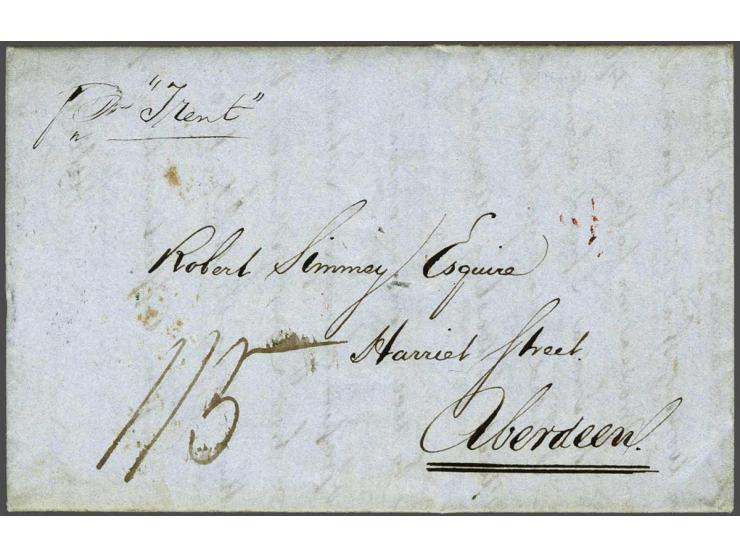 pr "Trent"
Robert Simmey Esquire
Harriet Street.
Aberdeen.
1/5